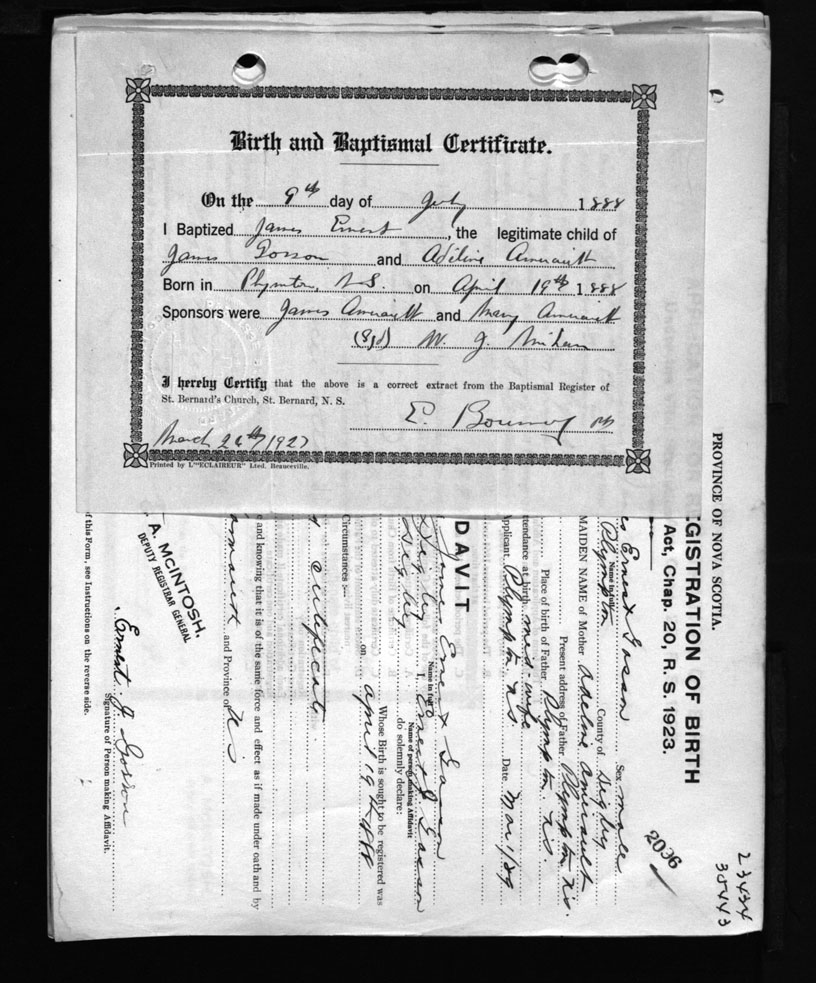 Birth and Baptismal Certificate.
On the 9th day of July 1888
I Baptized James Ernest, the legitimate child of
James Gosson and Adeline Amerault
Born in Plympton, N.S. on April 19th 1888
Sponsors were James Amerault and Mary Amerault
(Sgd) W. J.
I hereby Certify that the above is a correct extract from the Baptismal Register of
St. Bernard's Church, St. Bernard, N. S.
E.
March 26th/1927
Printed by L'"ECLAIREUR" Lted. Beauceville.
PROVINCE OF NOVA SCOTIA.
23434
38443
2036
EGISTRATION OF BIRTH
Act, Chap. 20, R. S. 1923.
es Ernest Gosson Sex male
Name in full
Plympton County of Digby
MAIDEN NAME of Mother Adeline Amerault
Present address of Father Plympton N.S.
Place of birth of Father Plympton N.S.
ttendance at birth mid-wife
Applicant Plympton N.S. Date Mar 1/29
DAVIT
James Ernest Gasson
Name in full
Digby I, Ernest J. Gasson
Name of person making Affidavit
Digby do solemnly declare:
Whose Birth is sought to be registered was
on April 19th 1888
Circumstances :—
certificate.
e and knowing that it is of the same force and effect as if made under oath and by
and Province of N S
A. McINTOSH,
DEPUTY REGISTRAR GENERAL
Ernest J. Gosson
Signature of Person making Affidavit.
of this Form, see Instructions on the reverse side.